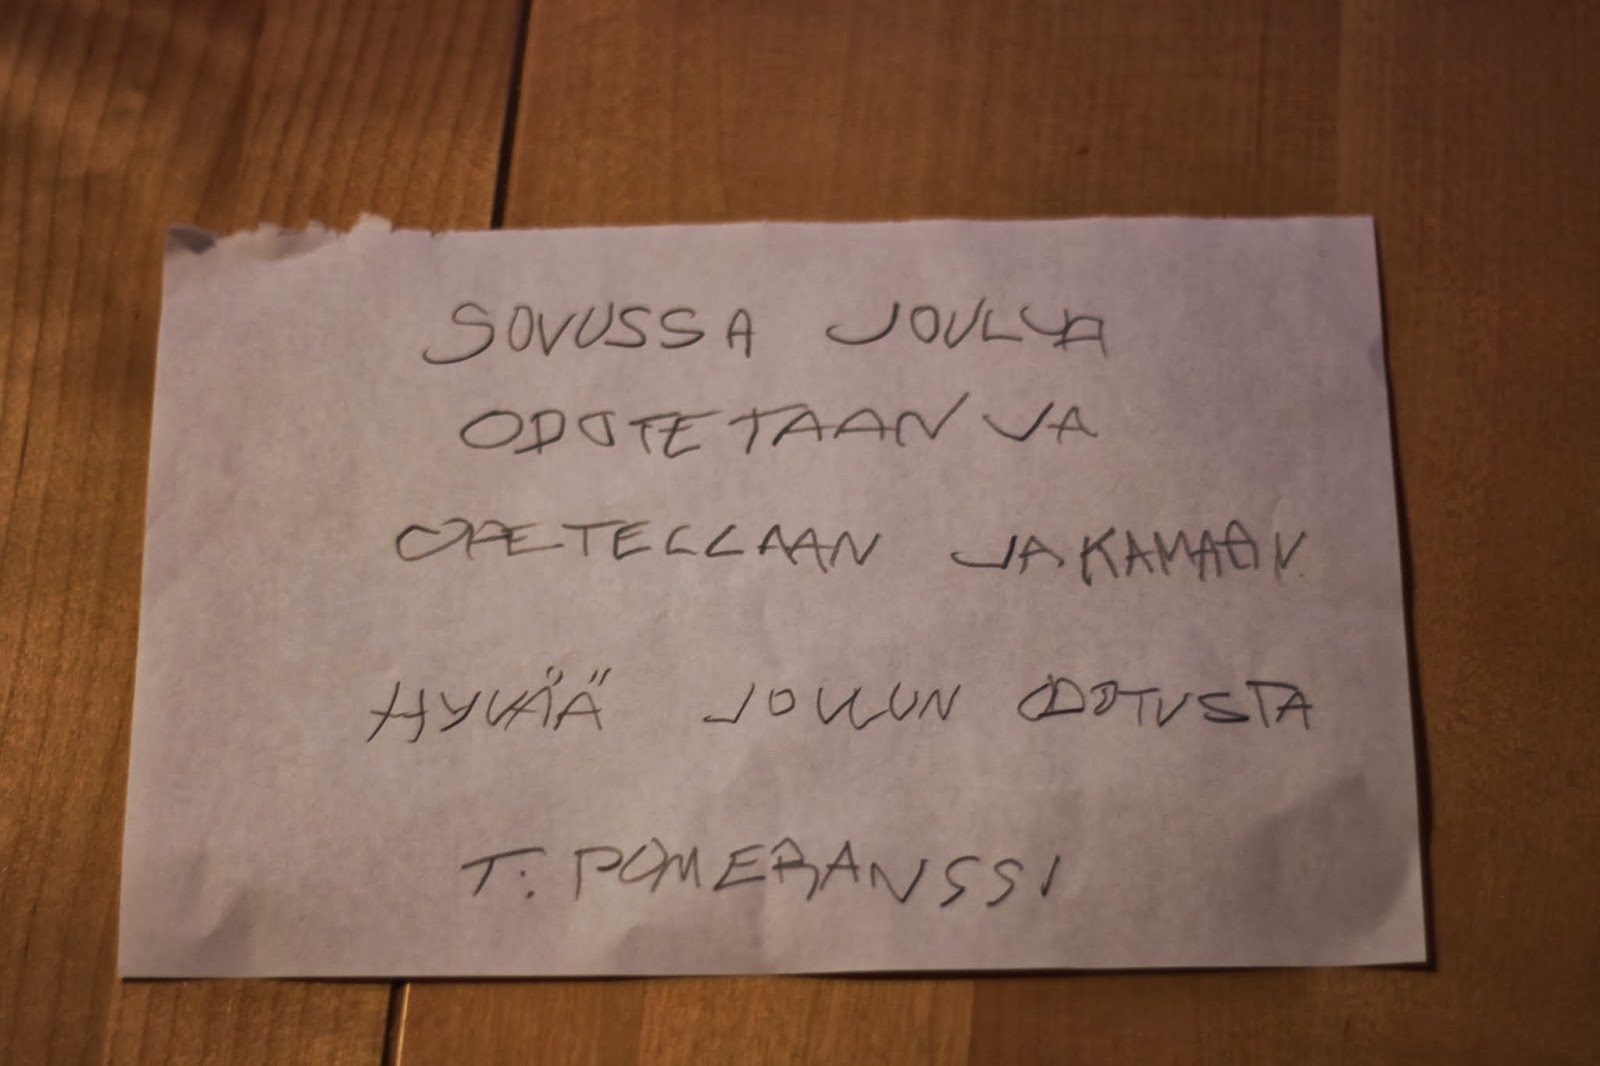 SOVUSSA JOULUA
ODOTETAAN JA
OPETELLAAN JAKAMAAN
HYVÄÄ JOULUN ODOTUSTA
T: POMERANSSI